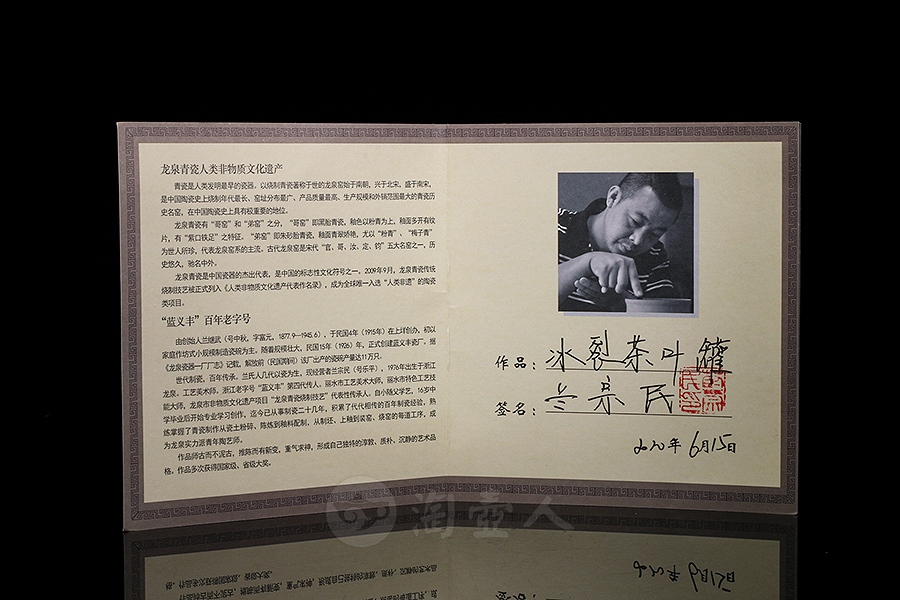 龙泉青瓷人类非物质文化遗产
青瓷是人类发明最早的瓷器。以烧制青瓷著称于世的龙泉窑始于南朝，兴于北宋，盛于南宋，
是中国陶瓷史上烧制年代最长、窑址分布最广、产品质量最高、生产规模和外销范围最大的青瓷历
史名窑，在中国陶瓷史上具有极重要的地位。
龙泉青瓷有“哥窑”和“弟窑”之分，“哥窑”即黑胎青瓷，釉色以粉青为上，釉面多开有纹
片，有“紫口铁足”之特征。“弟窑”即朱砂胎青瓷，釉面青翠娇艳，尤以“粉青”、“梅子青”
为世人所珍，代表龙泉窑系的主流。古代龙泉窑是宋代“官、哥、汝、定、钧”五大名窑之一，历
史悠久，驰名中外。
龙泉青瓷是中国瓷器的杰出代表，是中国的标志性文化符号之一，2009年9月，龙泉青瓷传统
烧制技艺被正式列入《人类非物质文化遗产代表作名录》，成为全球唯一入选“人类非遗”的陶瓷
类项目。
“蓝义丰”百年老字号
由创始人兰继武（号中秋，字富元，1877.9—1945.6），于民国4年（1915年）在上垟创办，初以
家庭作坊式小规模制造瓷碗为主，随着规模壮大，民国15年（1926）年，正式创建蓝义丰瓷厂。据
《龙泉瓷器一厂厂志》记载，解放前（民国期间）该厂出产的瓷碗产量达11万只。
世代制瓷，百年传承，兰氏人几代以瓷为生，现经营者兰宗民（号乐平），1976年出生于浙江
龙泉，工艺美术师，浙江老字号“蓝义丰”第四代传人，丽水市工艺美术大师，丽水市特色工艺技
能大师，龙泉市非物质文化遗产项目“龙泉青瓷烧制技艺”代表性传承人，自小随父学艺，16岁中
学毕业后开始专业学习创作，迄今已从事制瓷二十几年，积累了代代相传的百年制瓷经验，熟
练掌握了青瓷制作从瓷土粉碎、陈炼到釉料配制，从制坯、上釉到装窑、烧窑的每道工序，成
为龙泉实力派青年陶艺师。
作品师古而不泥古，推陈而有新变，重气求神，形成自己独特的淳敦、质朴、沉静的艺术品
格。作品多次获得国家级、省级大奖。
作品：冰裂茶叶罐
签名：兰宗民
2020年6月15日
淘壶人